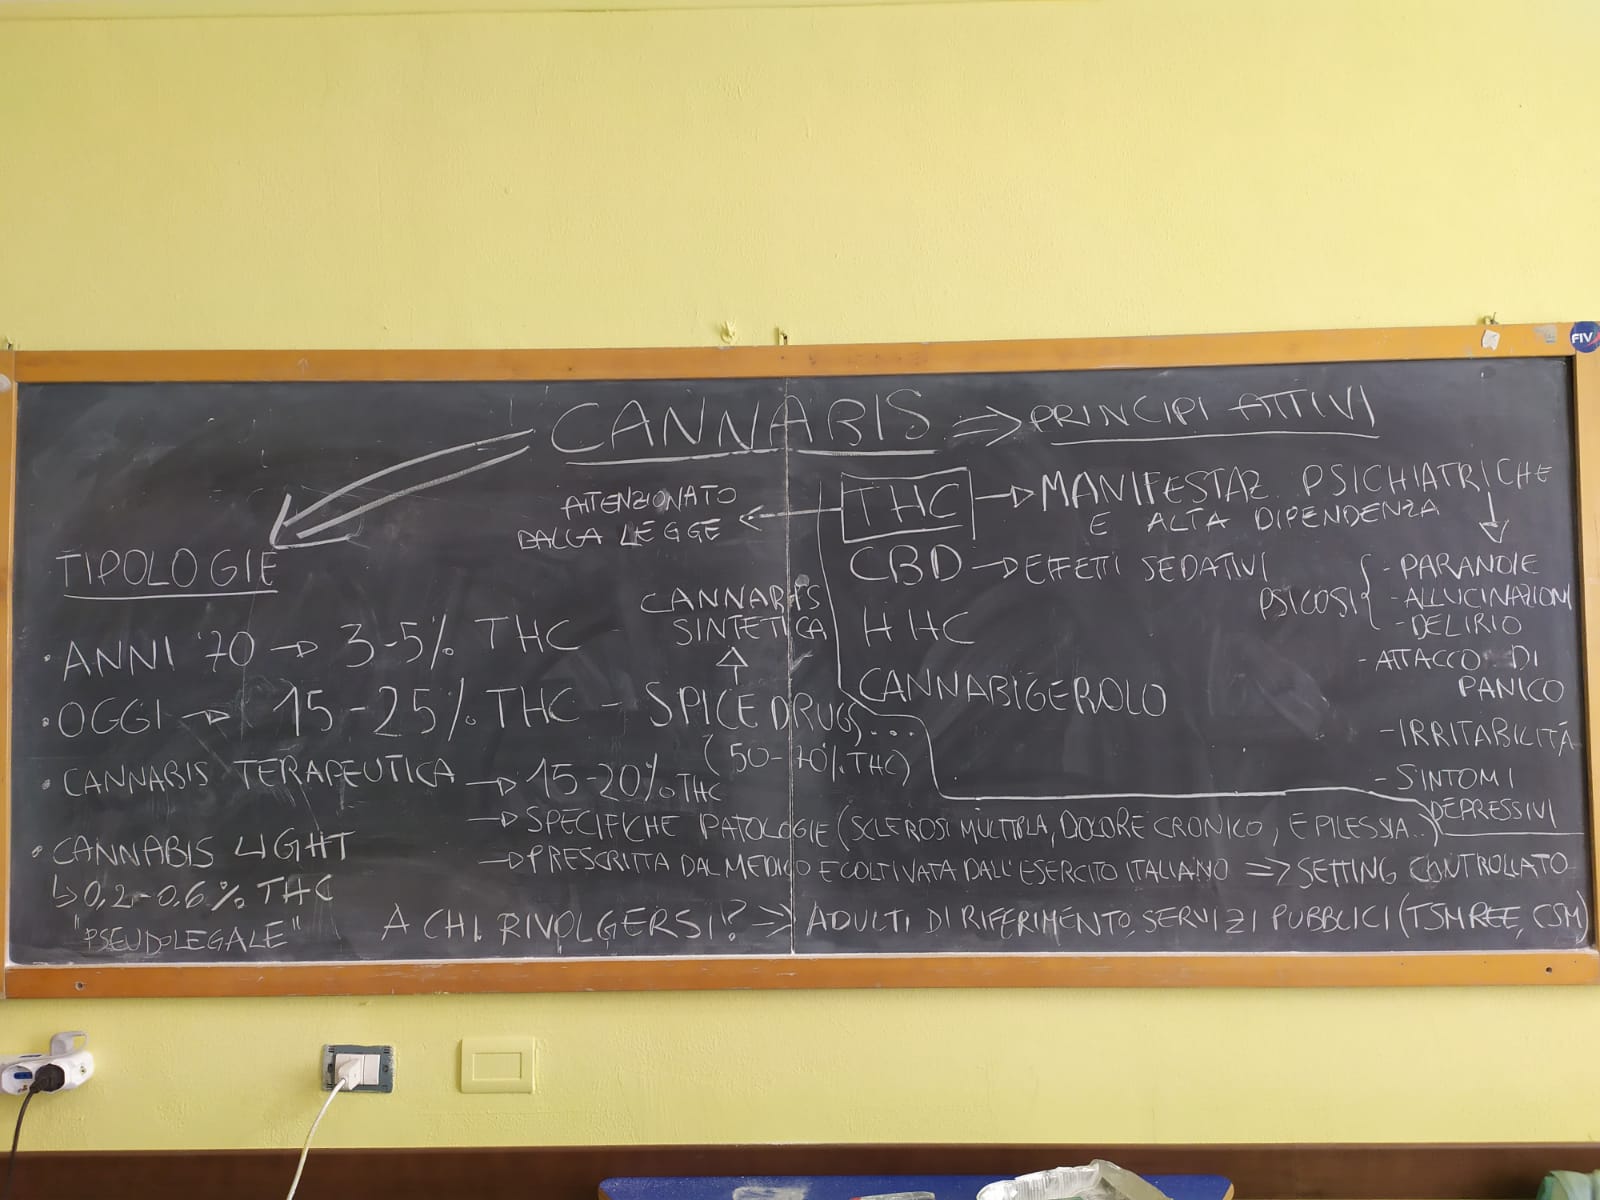 CANNABIS => PRINCIPI ATTIVI
ATTENZIONATO
DALLA LEGGE
THC → MANIFESTAZ. PSICHIATRICHE
E ALTA DIPENDENZA
CBD → EFFETTI SEDATIVI
PSICOSI { - PARANOIE
- ALLUCINAZIONI
- DELIRIO
- ATTACCO DI
PANICO
- IRRITABILITÀ
- SINTOMI
DEPRESSIVI
HHC
CANNABIGEROLO
TIPOLOGIE
• ANNI '70 → 3-5% THC
CANNABIS
SINTETICA
• OGGI → 15-25% THC - SPICE DRUGS...
(50-70% THC)
• CANNABIS TERAPEUTICA → 15-20% THC
→ SPECIFICHE PATOLOGIE (SCLEROSI MULTIPLA, DOLORE CRONICO, EPILESSIA..)
→ PRESCRITTA DAL MEDICO E COLTIVATA DALL'ESERCITO ITALIANO => SETTING CONTROLLATO
• CANNABIS LIGHT
↳ 0,2-0,6% THC
"PSEUDOLEGALE"
A CHI RIVOLGERSI? => ADULTI DI RIFERIMENTO, SERVIZI PUBBLICI (TSMREE, CSM)
FIV